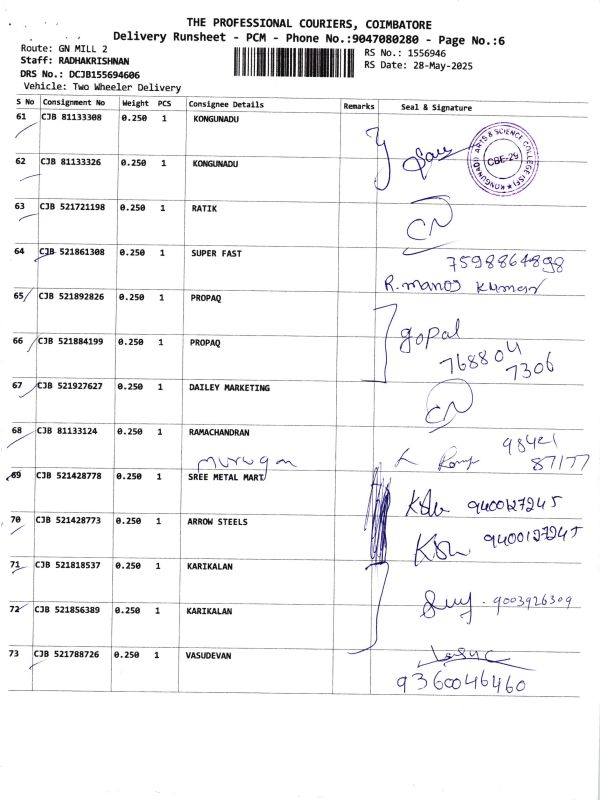 THE PROFESSIONAL COURIERS, COIMBATORE
Delivery Runsheet - PCM - Phone No.:9047080280 - Page No.:6
Route: GN MILL 2
RS No.: 1556946
Staff: RADHAKRISHNAN
RS Date: 28-May-2025
DRS No.: DCJB155694606
Vehicle: Two Wheeler Delivery
S No Consignment No Weight PCS Consignee Details Remarks Seal & Signature
61 CJB 81133308 0.250 1 KONGUNADU
KONGUNADU ARTS & SCIENCE COLLEGE
CBE-29
62 CJB 81133326 0.250 1 KONGUNADU
63 CJB 521721198 0.250 1 RATIK
CN
64 CJB 521861308 0.250 1 SUPER FAST
7598864898
R. manoj kumar
65 CJB 521892826 0.250 1 PROPAQ
gopal
66 CJB 521884199 0.250 1 PROPAQ
768804
7306
67 CJB 521927627 0.250 1 DAILEY MARKETING
CN
68 CJB 81133124 0.250 1 RAMACHANDRAN
98421
87177
murugan
69 CJB 521428778 0.250 1 SREE METAL MART
9400127245
70 CJB 521428773 0.250 1 ARROW STEELS
9400127245
71 CJB 521818537 0.250 1 KARIKALAN
9003926309
72 CJB 521856389 0.250 1 KARIKALAN
73 CJB 521788726 0.250 1 VASUDEVAN
9360046460